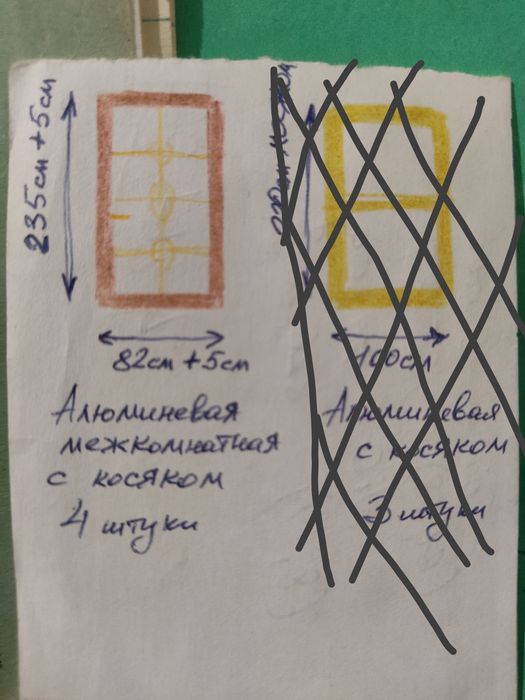 235см + 5см
82см + 5см
Алюминевая
межкомнатная
с косяком
4 штуки
100см
Алюминевая
с косяком
3 штуки